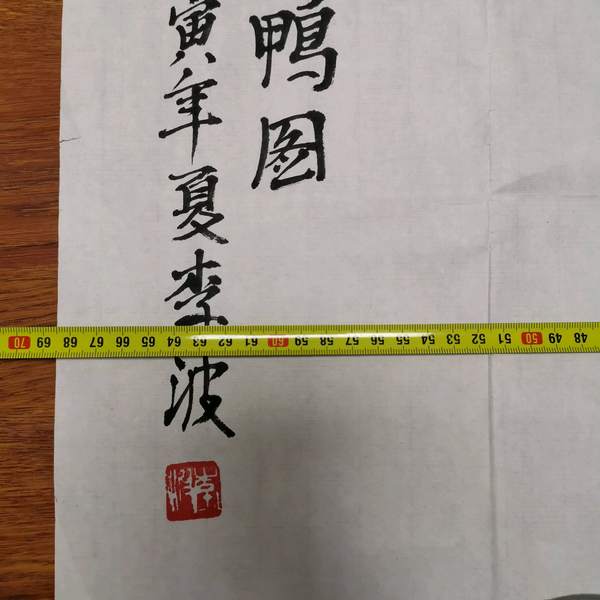 鸭图
寅年夏李波
70 69 68 67 66 65 64 63 62 61 60 59 58 57 56 55 54 53 52 51 50 49 48